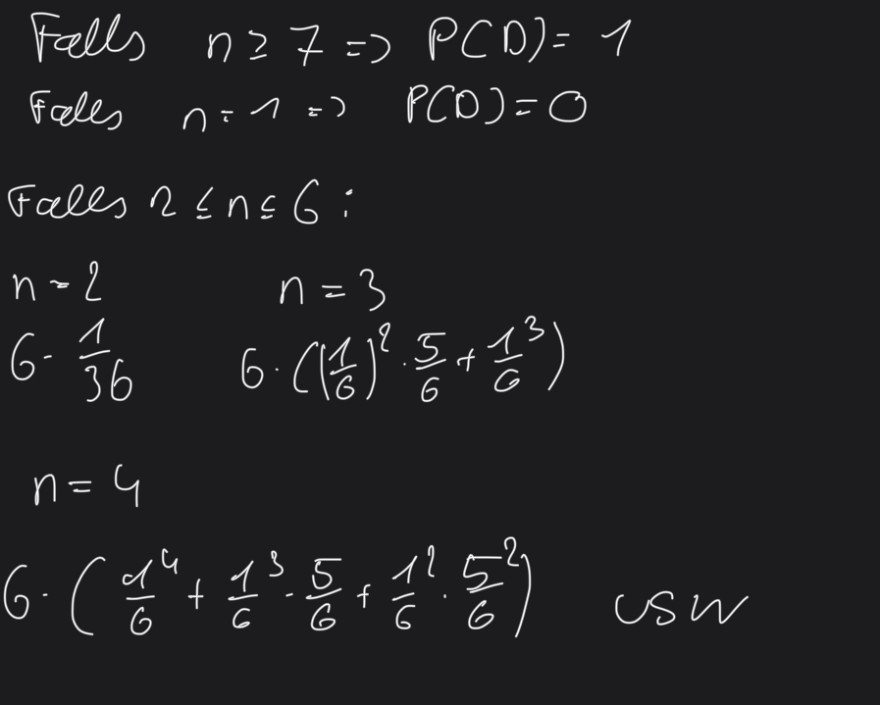 Falls n ≥ 7 => P(D) = 1
Falls n = 1 => P(D) = 0
Falls 2 ≤ n ≤ 6 :
n = 2 n = 3
6 · 1/36 6 · ((1/6)² · 5/6 + 1/6³)
n = 4
6 · (1⁴/6 + 1³/6 · 5/6 + 1²/6 · 5²/6) usw